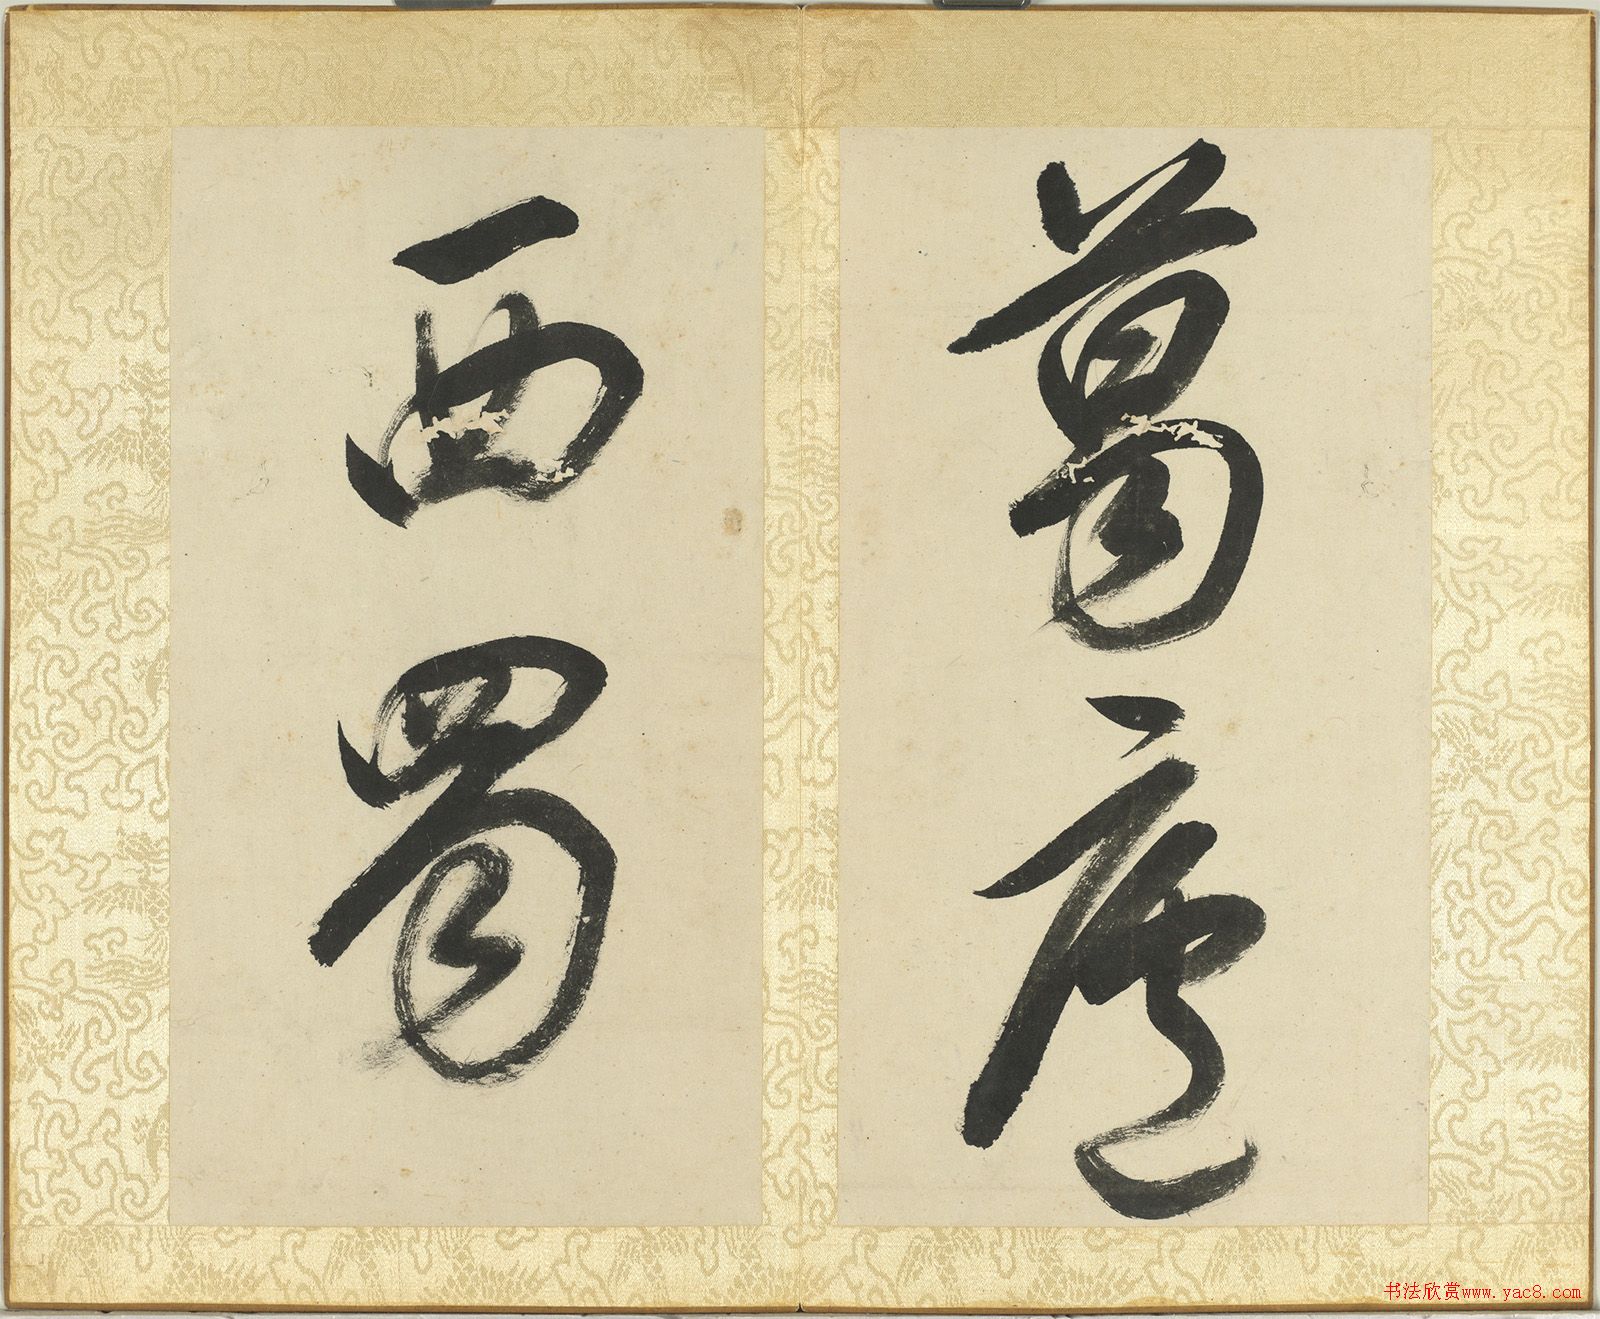 葛廬
西蜀
书法欣赏www.yac8.com